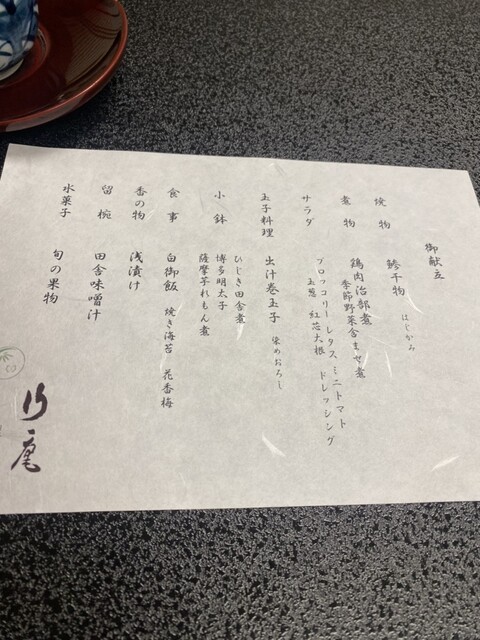 御献立
焼物 鯵干物 はじかみ
煮物 鶏肉治部煮
季節野菜含ませ煮
サラダ ブロッコリー レタス ミニトマト
玉葱 紅芯大根 ドレッシング
玉子料理 出汁巻玉子 染めおろし
小鉢 ひじき田舎煮
博多明太子
薩摩芋れもん煮
食事 白御飯 焼き海苔 花香梅
香の物 浅漬け
留椀 田舎味噌汁
水菓子 旬の果物